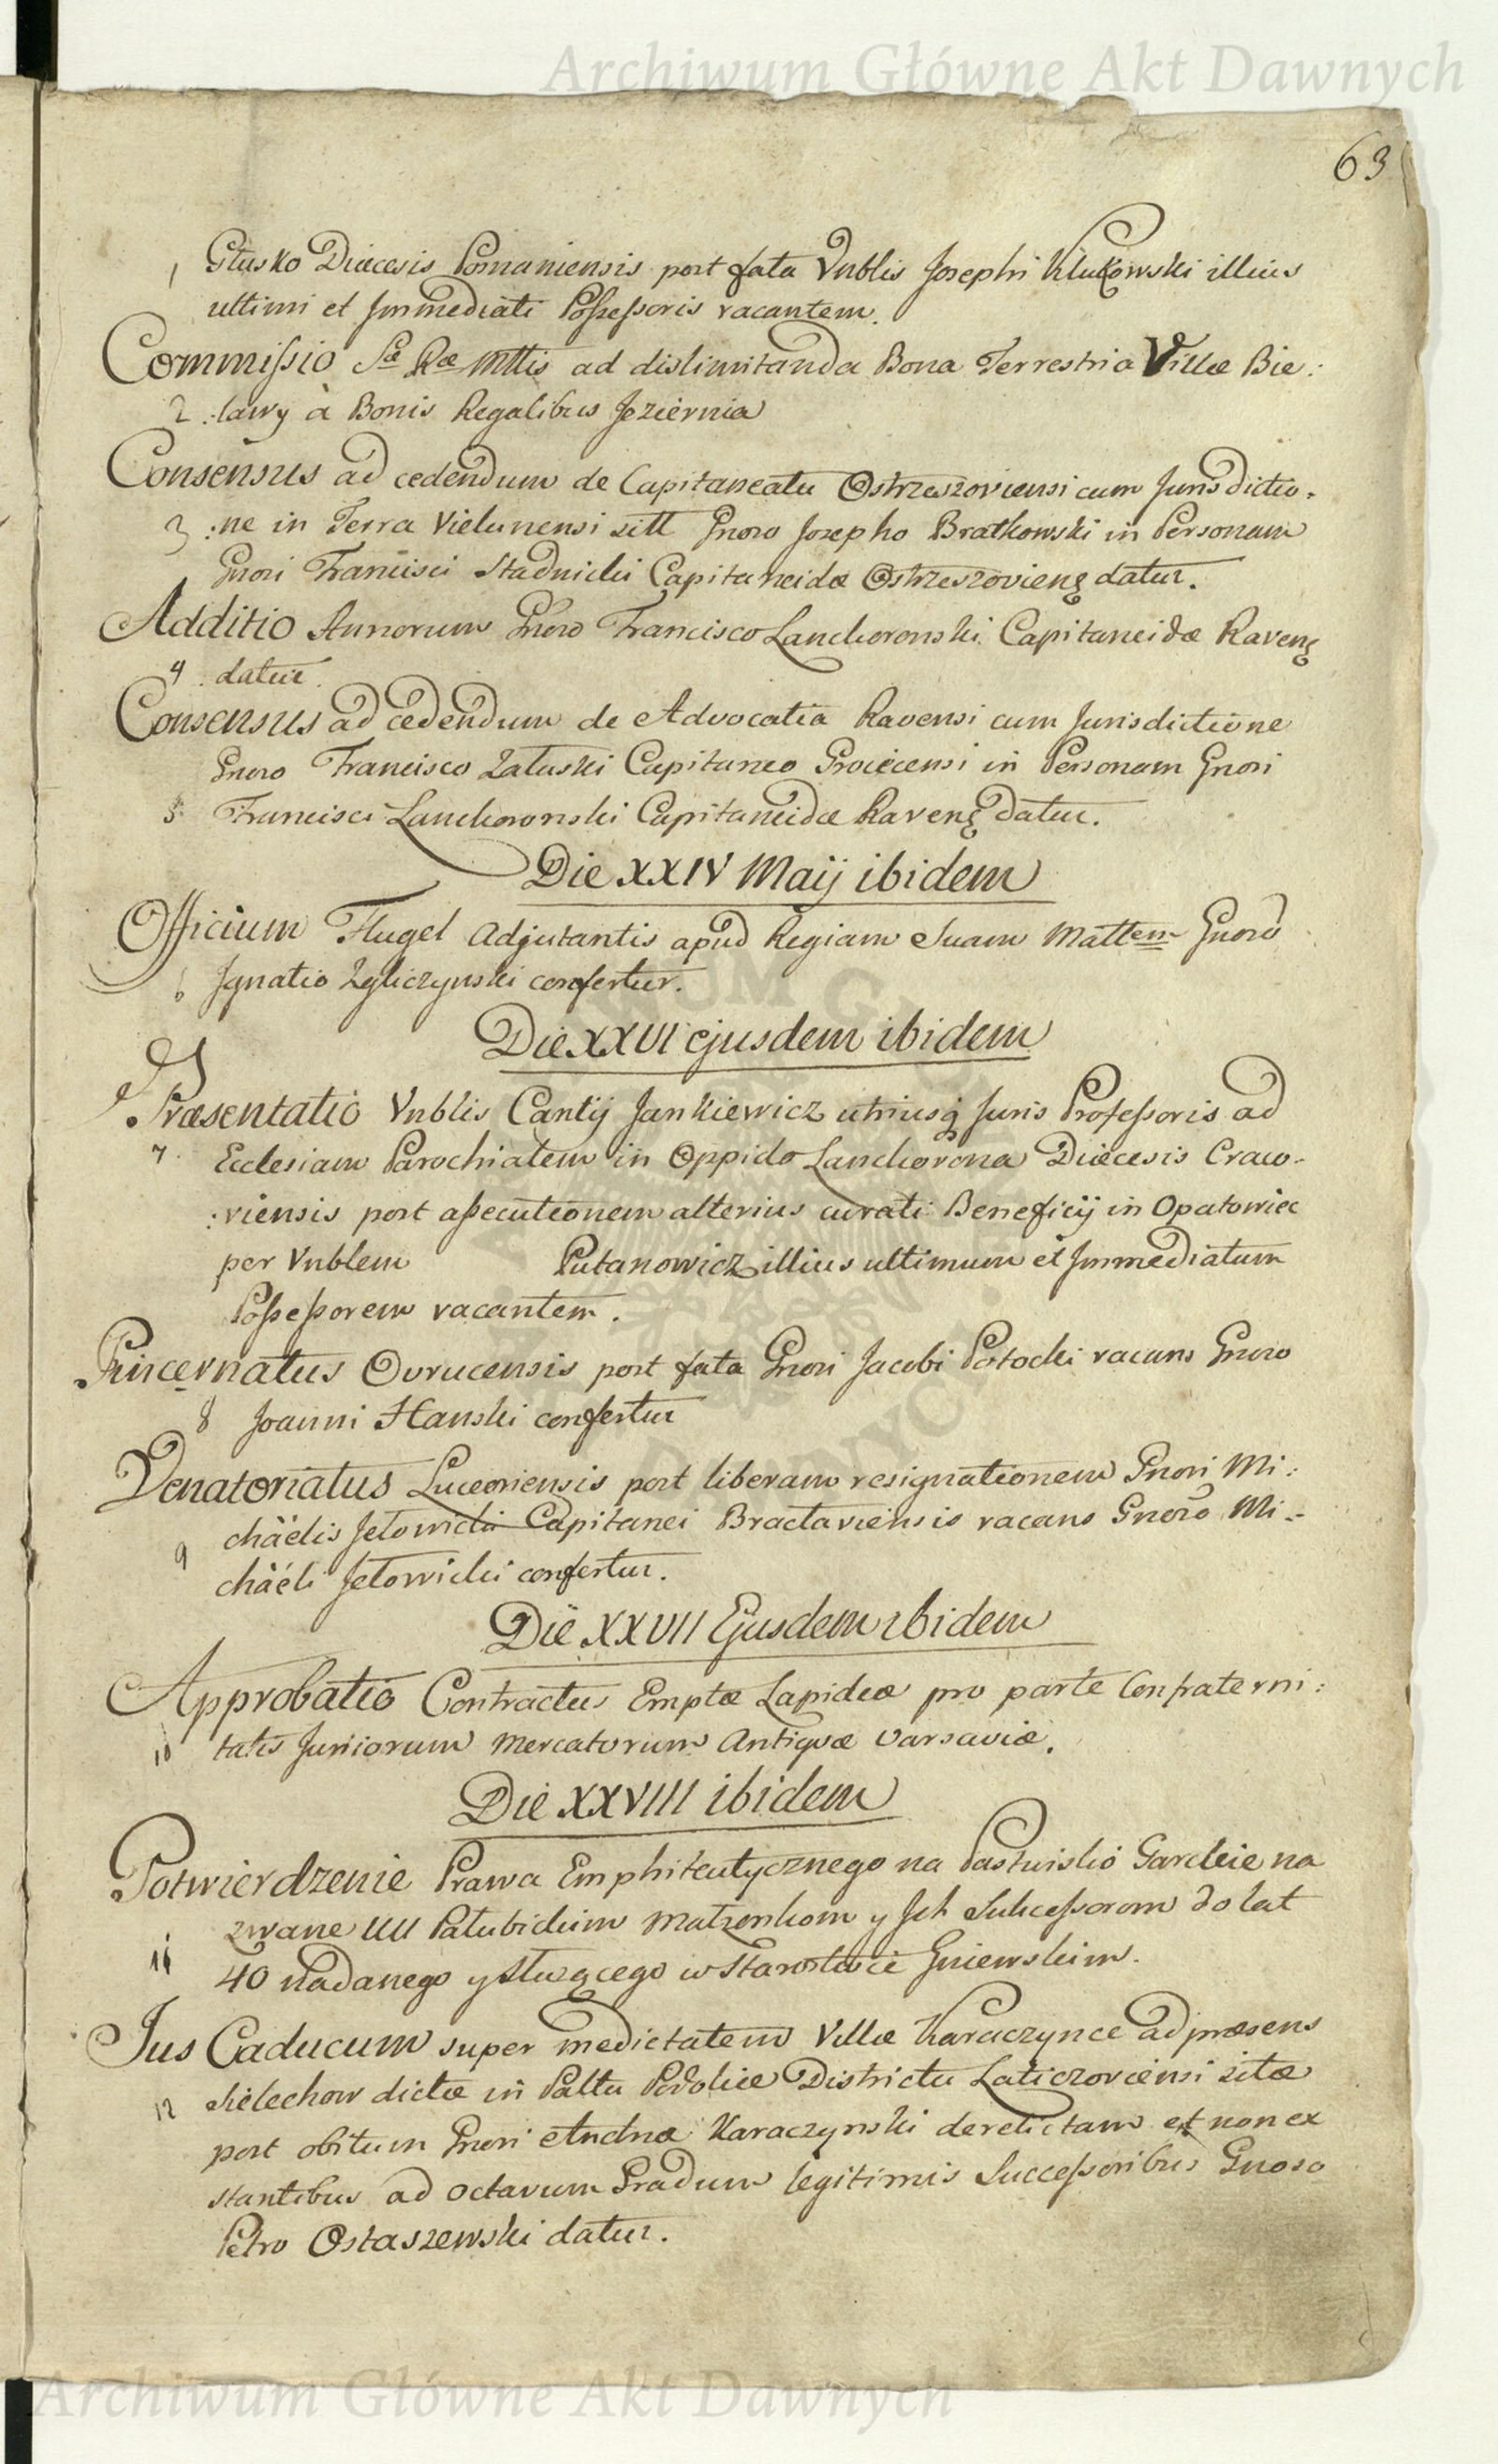 Archiwum Główne Akt Dawnych
63
1 Głusko Diæcesis Posnaniensis post fata Vnblis Josephi Klukowski illius
ultimi et Immediati Possessoris vacantem.
Commissio Sæ Ræ Mttis ad dislimitanda Bona Terrestria Villæ Bie:
2 :lawy à Bonis Regalibus Jeziernia
Consensus ad cedendum de Capitaneatu Ostrzeszoviensi cum Jurisdictio:
3 :ne in Terra Vielunensi sitt Gnoro Josepho Bratkowski in Personam
Gnori Francisci Stadnicki Capitaneidæ Ostrzeszoviens datur.
Additio Annorum Gnoro Francisco Lanckoronski Capitaneidæ Ravens
4 datur.
Consensus ad cedendum de Advocatia Ravensi cum Jurisdictione
Gnoro Francisco Załuski Capitaneo Groiecensi in Personam Gnori
5 Francisci Lanckoronski Capitaneidæ Ravens datur.
Die XXIV Maij ibidem
Officium Flugel Adjutantis apud Regiam Suam Mattem Gnoro
6 Ignatio Zgliczynski confertur.
Die XXVI ejusdem ibidem
Præsentatio Vnblis Cantij Jankiewicz utriusq Juris Professoris ad
7 Ecclesiam Parochialem in Oppido Lanckorona Diæcesis Craco-
:viensis post assecutionem alterius curati Beneficij in Opatowiec
per Vnblem Putanowicz illius ultimum et Immediatum
Possessorem vacantem.
Pincernatus Ovrucensis post fata Gnori Jacobi Potocki vacans Gnoro
8 Joanni Hanski confertur
Venatoriatus Luceoriensis post liberam resignationem Gnori Mi:
9 chäelis Jełowicki Capitanei Bractaviensis vacans Gnoro Mi:
chäeli Jełowicki confertur.
Die XXVII Ejusdem ibidem
Approbatio Contractus Emptæ Lapideæ pro parte Confraterni:
10 tatis Juniorum Mercatorum Antiquæ Varsaviæ.
Die XXVIII ibidem
Potwierdzenie Prawa Emphiteutycznego na Pastwisko Gardeie na
11 zwane UU Patubickim Małżonkom y Jch Sukcessorom do lat
40 nadanego y służącego w Starostwie Gniewskim.
Jus Caducum super medietatem Villæ Karaczynce ad præsens
12 Sielechow dictæ in Paltu Podoliæ Districtu Laticzoviensi sitæ
post obitum Gnori Andreæ Karaczynski derelictam et non ex
stantibus ad octavum Gradum legitimis Successoribus Gnoro
Petro Ostaszewski datur.
Archiwum Główne Akt Dawnych